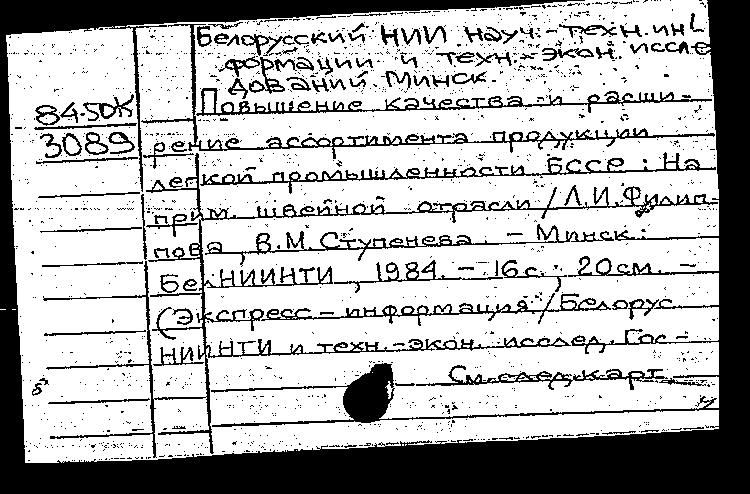 Белорусский НИИ науч.-техн. ин
формации и техн.-экон. иссле
дований. Минск.
84-50К
Повышение качества и расши-
3089
рение ассортимента продукции
легкой промышленности БССР: На
прим. швейной отрасли / Л.И.Филип-
пова, В.М.Ступенева. - Минск:
БелНИИНТИ, 1984. - 16с.; 20см. -
(Экспресс-информация / Белорус
НИИНТИ и техн.-экон. исслед. Гос-
См.след.карт.